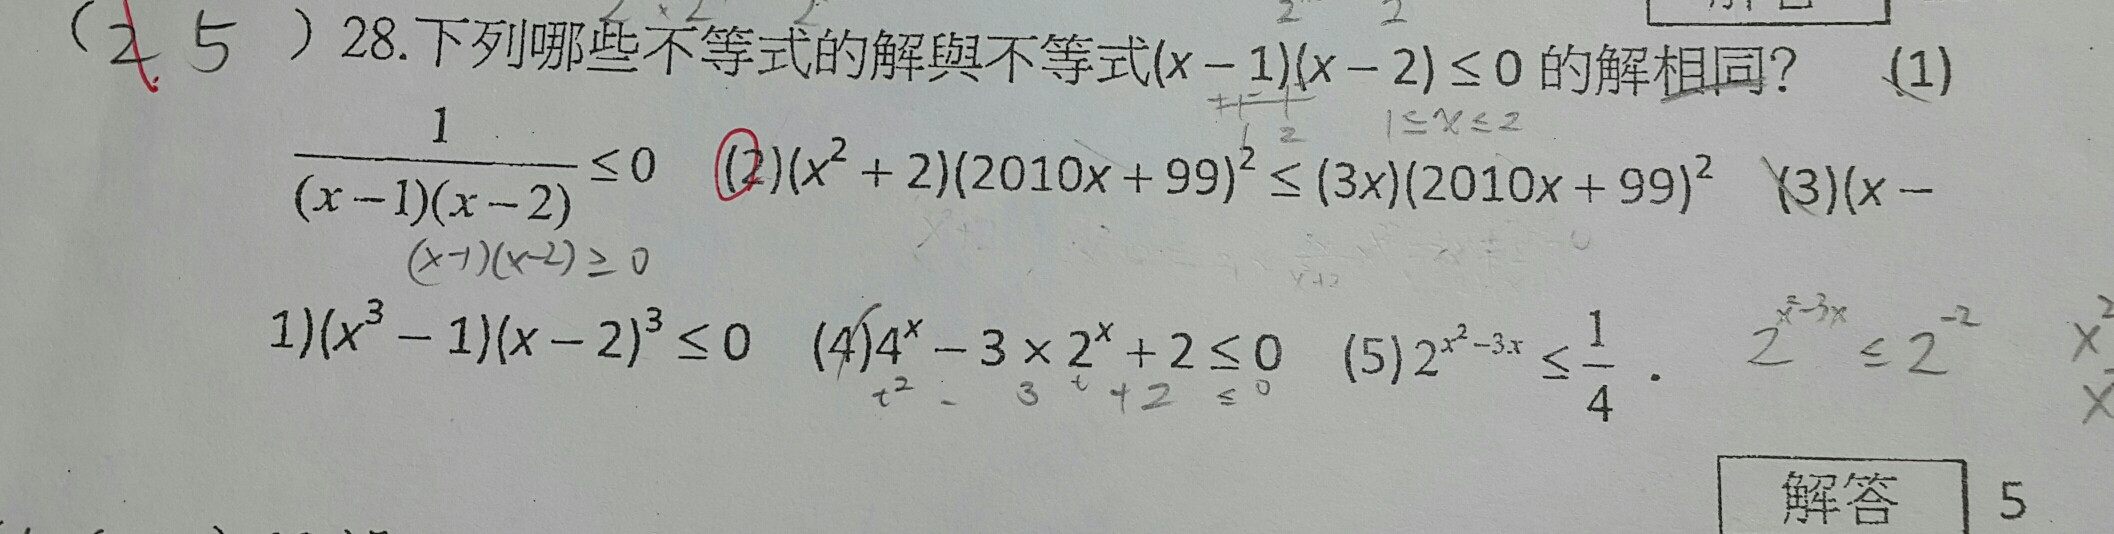 (2. 5 ) 28.下列哪些不等式的解與不等式(x − 1)(x − 2) ≤ 0 的解相同? (1)
1 2
1≤x≤2
1/((x−1)(x−2)) ≤ 0 (2)(x² + 2)(2010x + 99)² ≤ (3x)(2010x + 99)² (3)(x −
(x-1)(x-2) ≥ 0
1)(x³ − 1)(x − 2)³ ≤ 0 (4)4ˣ − 3 × 2ˣ + 2 ≤ 0 (5) 2^(x²−3x) ≤ 1/4 . 2^(x²-3x) ≤ 2^(-2)
t² - 3 t +2 ≤ 0
解答 5